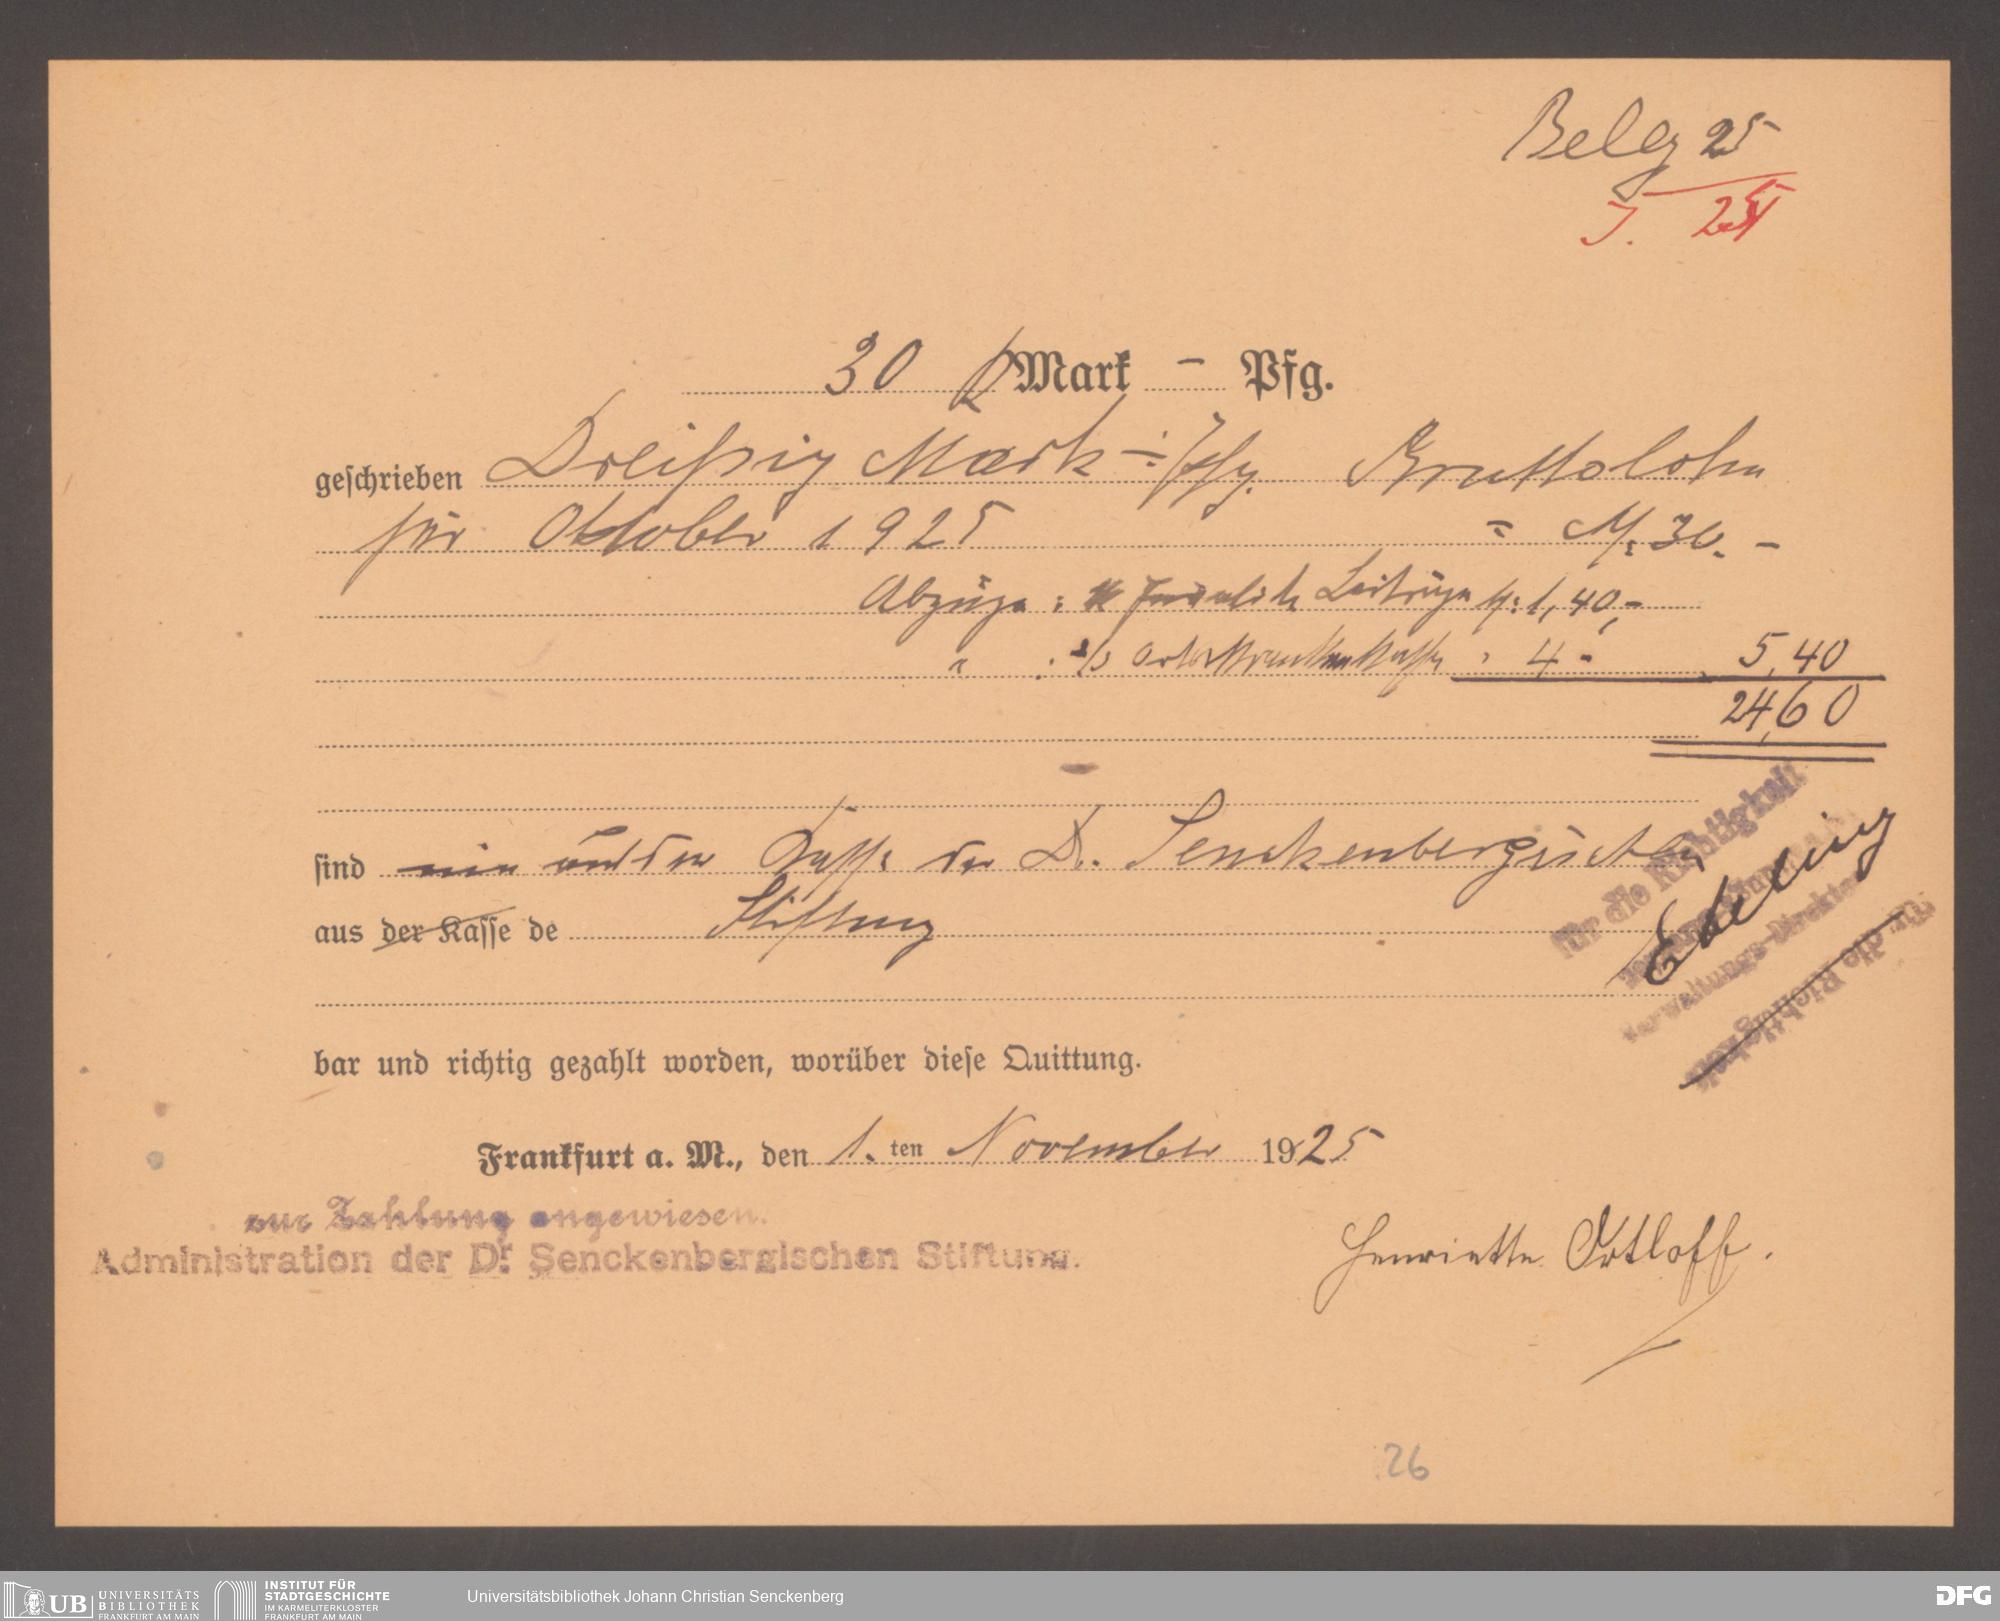 Beleg 25
J. 25
30 Mark – Pfg.
geschrieben Dreißig Mark –: Pfg. Bruttolohn
für Oktober 1925 = M. 30. –
Abzüge : Beiträge M: 1,40,-
" : 2/3 Ortskrankenkasse " 4 - 5,40
24,60
sind aus der Kasse der Dr. Senckenbergischen
aus der Kasse de Stiftung
für die Richtigkeit
Verwaltungs-Direktor
Edinng
Für die Richtigkeit
bar und richtig gezahlt worden, worüber diese Quittung.
Frankfurt a. M., den 1. ten November 1925
zur Zahlung angewiesen.
Administration der Dr. Senckenbergischen Stiftung.
Henriette Ortloff.
26
UB UNIVERSITÄTS BIBLIOTHEK FRANKFURT AM MAIN
INSTITUT FÜR STADTGESCHICHTE IM KARMELITERKLOSTER FRANKFURT AM MAIN
Universitätsbibliothek Johann Christian Senckenberg
DFG